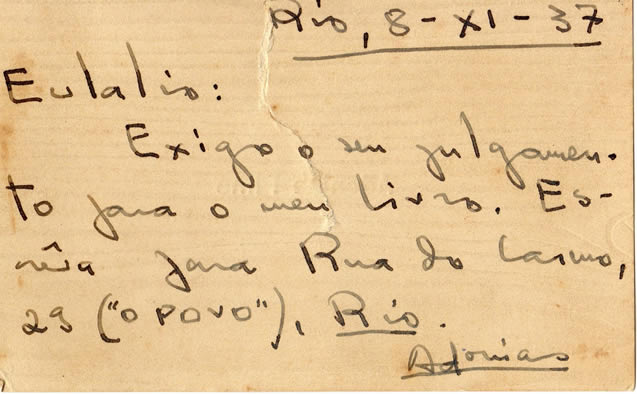 Rio, 8-XI-37
Eulalio:
Exigo o seu julgamen-
to para o meu livro. Es-
crêva para Rua do Carmo,
29 ("O POVO"), Rio.
Adonias